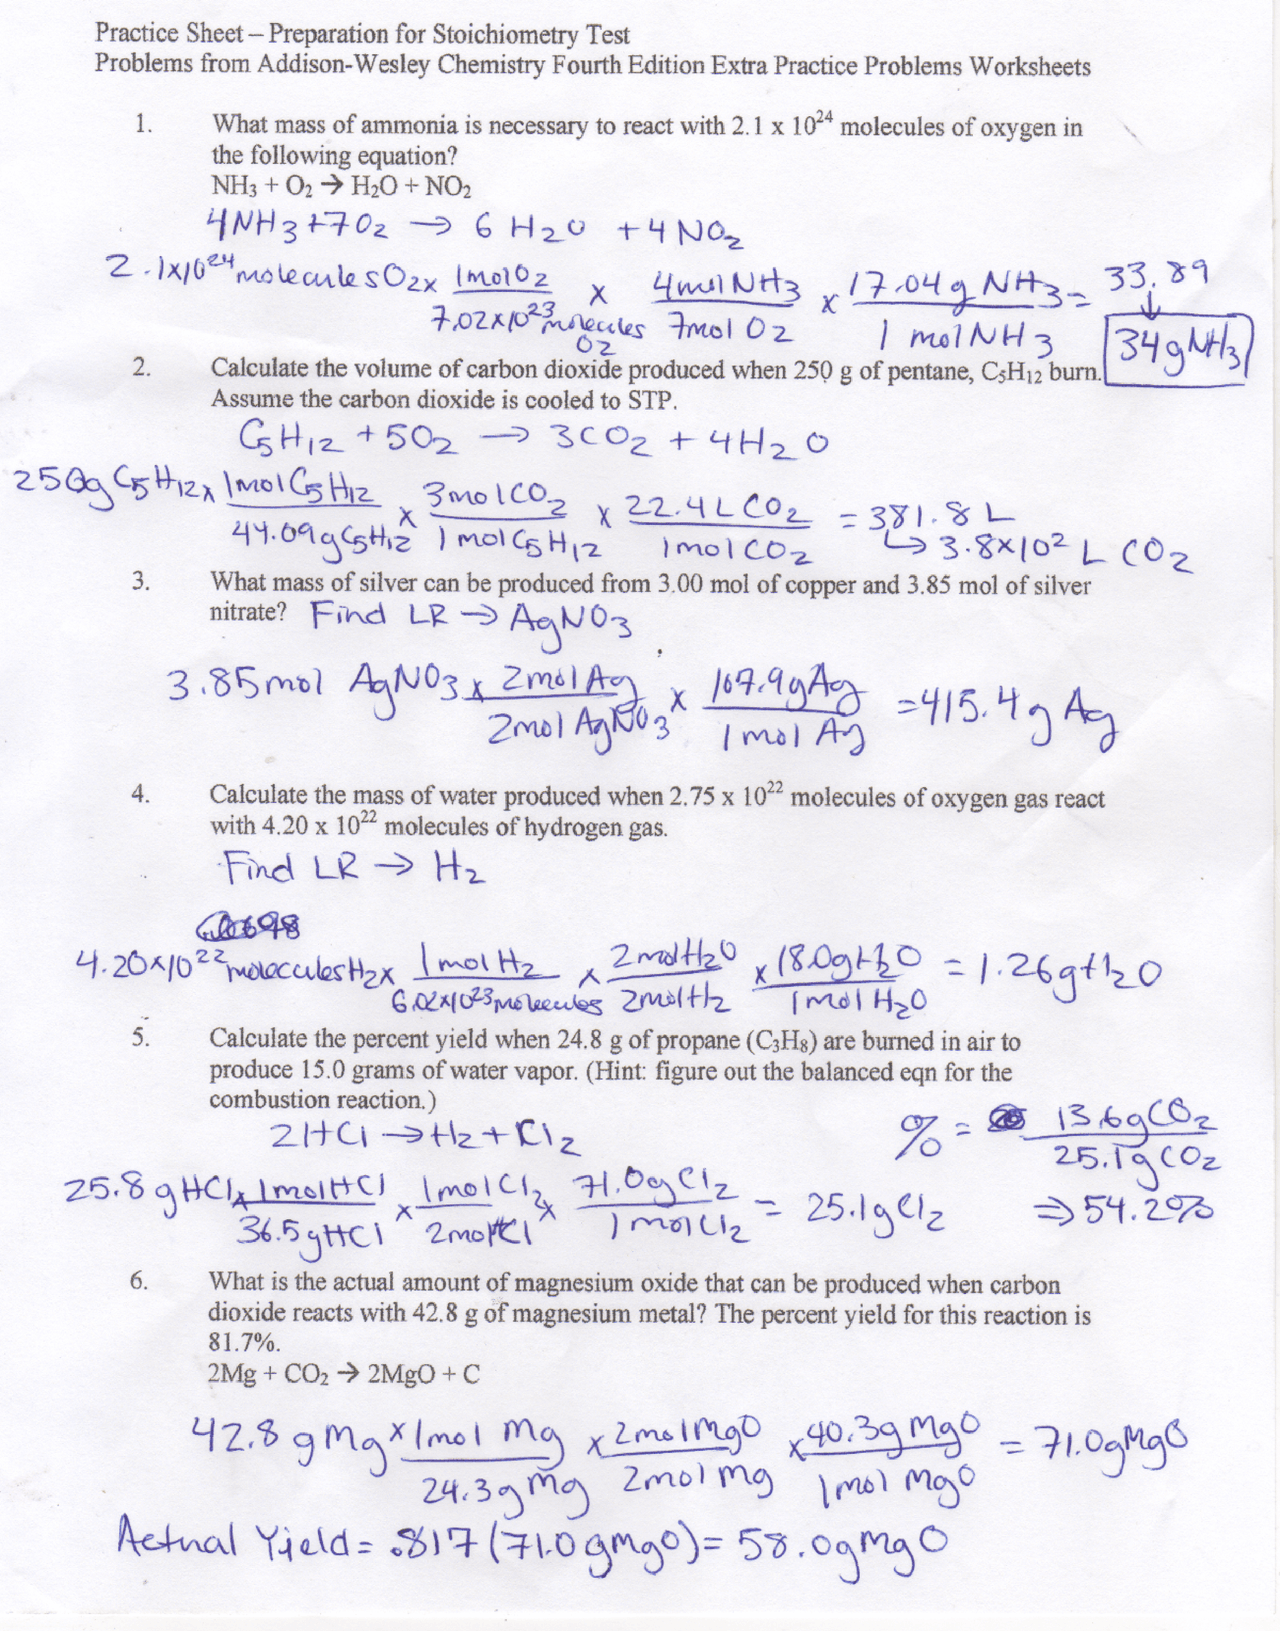 Practice Sheet – Preparation for Stoichiometry Test
Problems from Addison-Wesley Chemistry Fourth Edition Extra Practice Problems Worksheets
1. What mass of ammonia is necessary to react with 2.1 x 10²⁴ molecules of oxygen in
the following equation?
NH₃ + O₂ → H₂O + NO₂
4NH₃ + 7O₂ → 6 H₂O + 4 NO₂
2.1x10²⁴ molecules O₂ x 1mol O₂ / 7.02x10²³ molecules O₂ x 4mol NH₃ / 7mol O₂ x 17.04g NH₃ / 1 mol NH₃ = 33.89
↓
34g NH₃
2. Calculate the volume of carbon dioxide produced when 250 g of pentane, C₅H₁₂ burn.
Assume the carbon dioxide is cooled to STP.
C₅H₁₂ + 5O₂ → 3CO₂ + 4H₂O
250g C₅H₁₂ x 1mol C₅H₁₂ / 44.09g C₅H₁₂ x 3mol CO₂ / 1 mol C₅H₁₂ x 22.4L CO₂ / 1mol CO₂ = 381.8 L
↳ 3.8x10² L CO₂
3. What mass of silver can be produced from 3.00 mol of copper and 3.85 mol of silver
nitrate? Find LR → AgNO₃
3.85mol AgNO₃ x 2mol Ag / 2mol AgNO₃ x 107.9g Ag / 1mol Ag = 415.4g Ag
4. Calculate the mass of water produced when 2.75 x 10²² molecules of oxygen gas react
with 4.20 x 10²² molecules of hydrogen gas.
Find LR → H₂
4.20x10²² molecules H₂ x 1mol H₂ / 6.02x10²³ molecules x 2mol H₂O / 2mol H₂ x 18.0g H₂O / 1mol H₂O = 1.26g H₂O
5. Calculate the percent yield when 24.8 g of propane (C₃H₈) are burned in air to
produce 15.0 grams of water vapor. (Hint: figure out the balanced eqn for the
combustion reaction.)
2HCl → H₂ + Cl₂
% = 13.6g CO₂ / 25.1g CO₂
25.8 g HCl x 1mol HCl / 36.5g HCl x 1mol Cl₂ / 2mol HCl x 71.0g Cl₂ / 1mol Cl₂ = 25.1g Cl₂
⇒ 54.2%
6. What is the actual amount of magnesium oxide that can be produced when carbon
dioxide reacts with 42.8 g of magnesium metal? The percent yield for this reaction is
81.7%.
2Mg + CO₂ → 2MgO + C
42.8 g Mg x 1mol Mg / 24.3g Mg x 2mol MgO / 2mol Mg x 40.3g MgO / 1mol MgO = 71.0g MgO
Actual Yield = .817 (71.0 g MgO) = 58.0g MgO